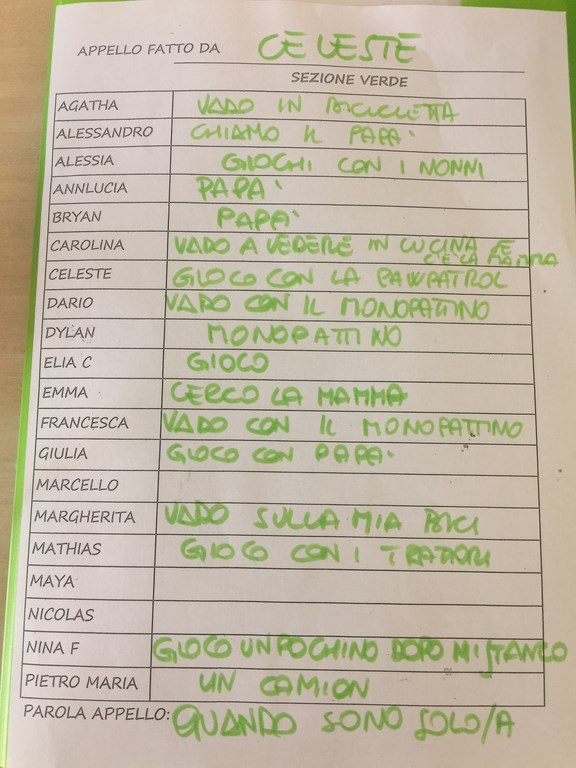 APPELLO FATTO DA CELESTE
SEZIONE VERDE
AGATHA VADO IN BICICLETTA
ALESSANDRO CHIAMO IL PAPA'
ALESSIA GIOCHI CON I NONNI
ANNLUCIA PAPA'
BRYAN PAPA'
CAROLINA VADO A VEDERE IN CUCINA SE
C'È LA MAMMA
CELESTE GIOCO CON LA PAWPATROL
DARIO VADO CON IL MONOPATTINO
DYLAN MONOPATTINO
ELIA C GIOCO
EMMA CERCO LA MAMMA
FRANCESCA VADO CON IL MONOPATTINO
GIULIA GIOCO CON PAPA'
MARCELLO
MARGHERITA VADO SULLA MIA BICI
MATHIAS GIOCO CON I TRATTORI
MAYA
NICOLAS
NINA F GIOCO UN POCHINO DOPO MI STANCO
PIETRO MARIA UN CAMION
PAROLA APPELLO: QUANDO SONO SOLO/A